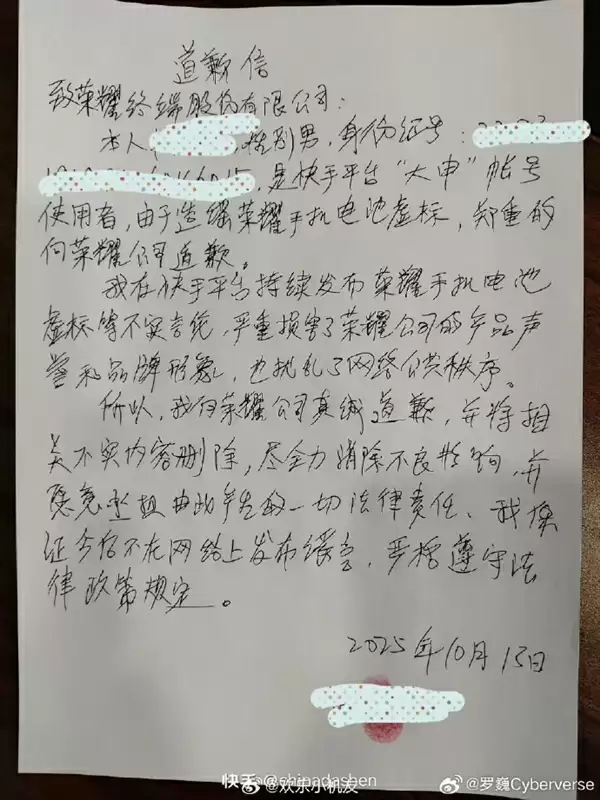 道歉信
致荣耀终端股份有限公司：
本人 性别男，身份证号：
，是快手平台“大申”帐号
使用者，由于造谣荣耀手机电池虚标，郑重的
向荣耀公司道歉。
我在快手平台持续发布荣耀手机电池
虚标等不实言论，严重损害了荣耀公司的产品声
誉和品牌形象，也扰乱了网络公共秩序。
所以，我向荣耀公司真诚道歉，并将相
关不实内容删除，尽全力消除不良影响，并
愿意承担由此产生的一切法律责任、我保
证今后不在网络上发布谣言，严格遵守法
律政策规定。
2025年10月13日
快手 @chinadashen
@欢乐小机友
@罗巍Cyberverse